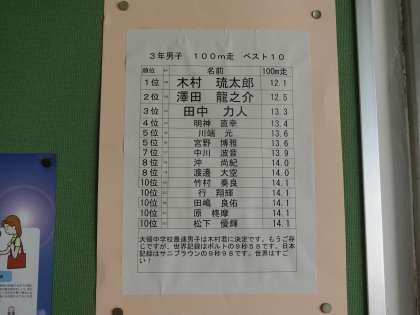 3年男子　100m走　ベスト10
順位 名前 100m走
1位 木村　琉太郎 12.1
2位 澤田　龍之介 12.5
3位 田中　力人 13.3
4位 明神　直幸 13.4
5位 川端　元 13.6
5位 宮野　博雅 13.6
7位 中川　波音 13.9
8位 沖　尚紀 14.0
8位 渡邉　大空 14.0
10位 竹村　奏良 14.1
10位 行　翔輝 14.1
10位 田嶋　良佑 14.1
10位 原　柊摩 14.1
10位 松下　優輝 14.1
中学校最速男子は木村君に決定です。もうご存
じですが、世界記録はボルトの9秒58です。日本
記録はサニブラウンの9秒98です。世界はすご
い！